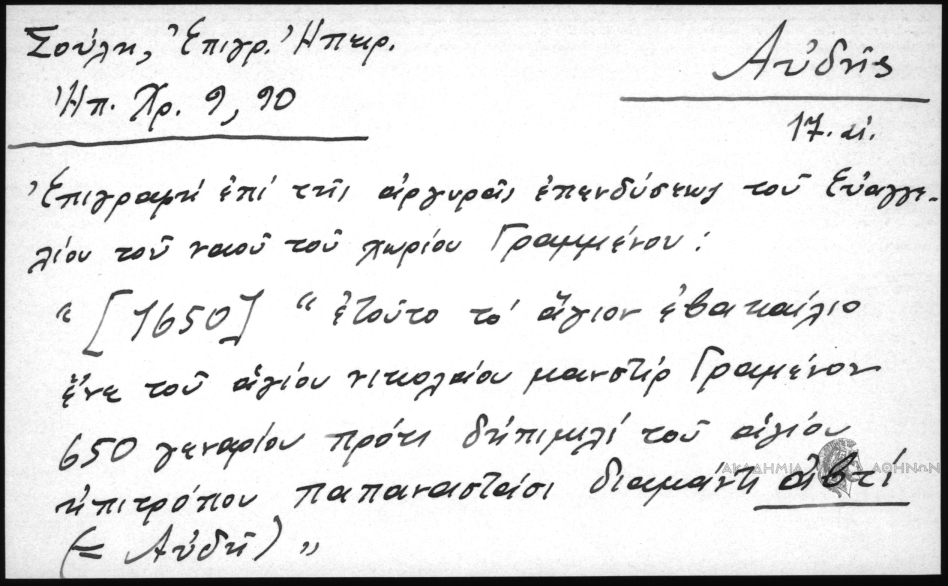 Σούλη, Ἐπιγρ. Ἠπειρ.
Ἠπ. Χρ. 9, 90
Αὐδῆς
17. αἰ.
Ἐπιγραφή ἐπί τῆς ἀργυρᾶς ἐπενδύσεως τοῦ Εὐαγγε-
λίου τοῦ ναοῦ τοῦ χωρίου Γραμμένου:
“ [1650] “ ἐτοῦτο τό ἅγιον ἐβακαίλιο
ἔνε τοῦ ἁγίου νικολαίου μανστίρ Γραμένον
650 γεναρίου πρότι δηπιμελί τοῦ ἁγίου
ηπιτρόπου παπαναστάσι διαμάντι ἀβτί
(= Αὐδῆ) „
ΑΚΑΔΗΜΙΑ ΑΘΗΝΩΝ